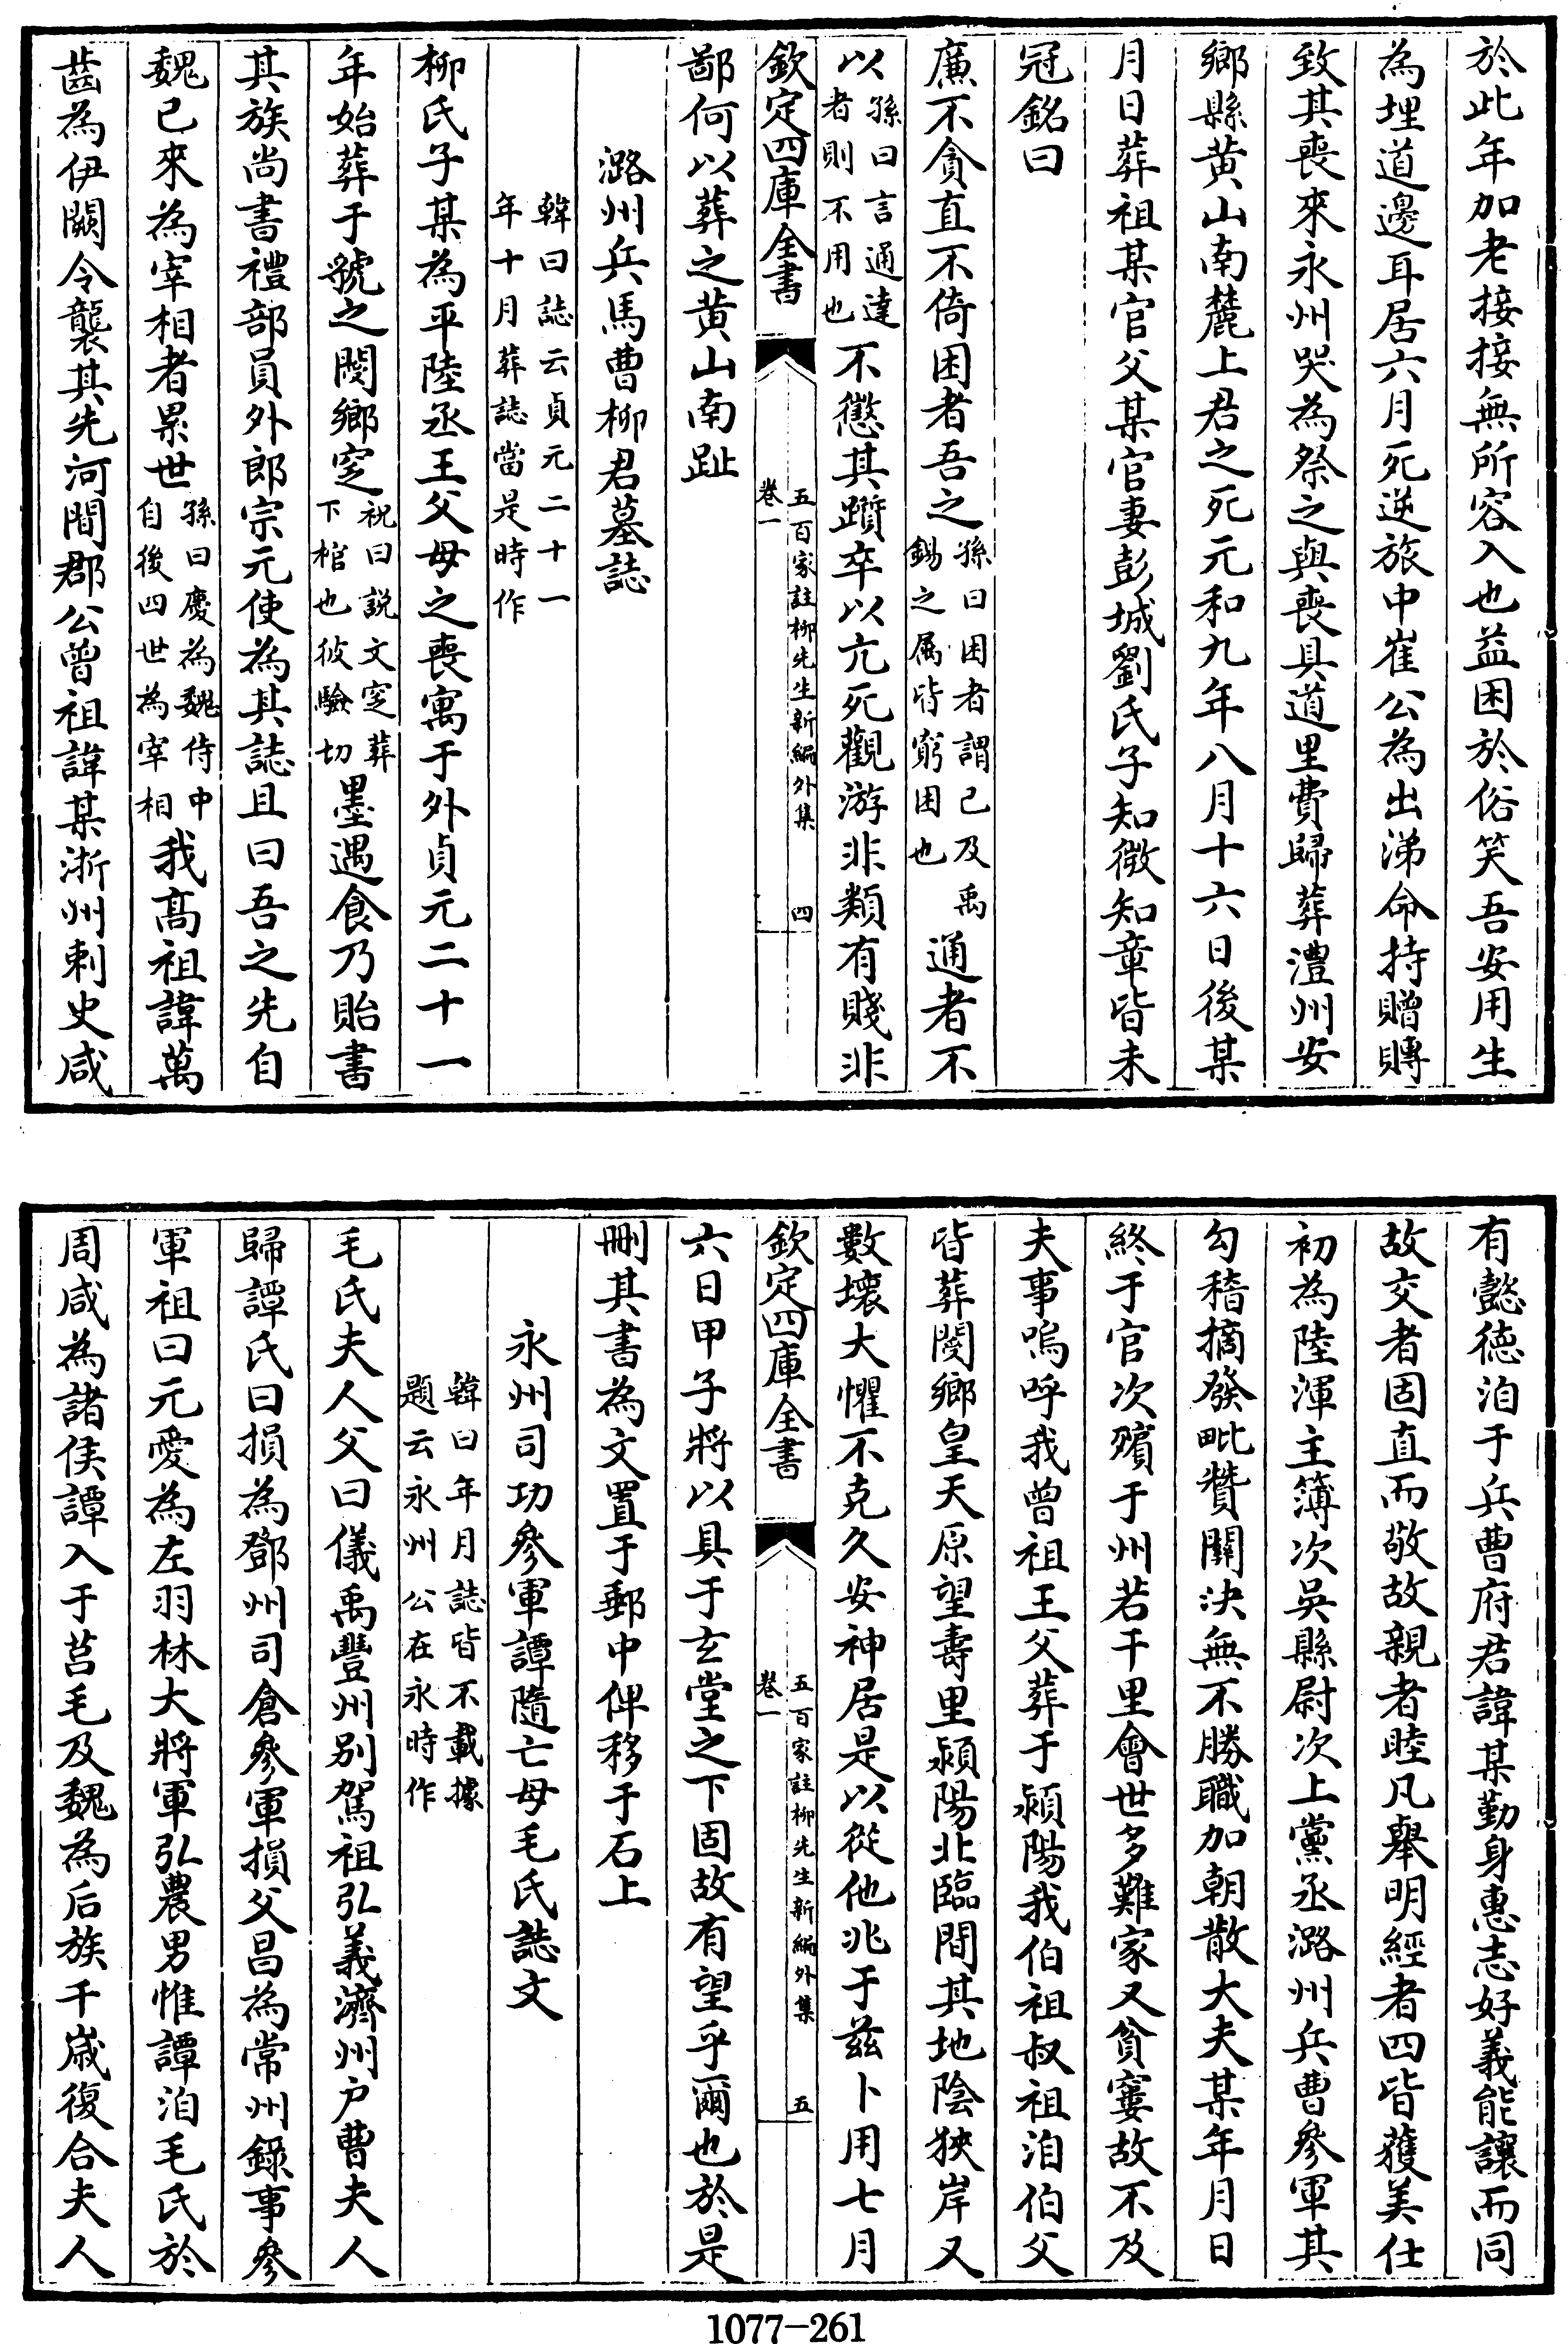 於此年加老接接無所容入也益困於俗笑吾安用生
為埋道邊耳居六月死逆旅中崔公為出涕命持贈賻
致其喪來永州哭為祭之與喪具道里費歸葬澧州安
鄉縣黄山南麓上君之死元和九年八月十六日後某
月日葬祖某官父某官妻彭城劉氏子知微知章皆未
冠銘曰
廉不貪直不倚困者吾之孫曰困者謂己及禹錫之属皆窮困也通者不
以孫曰言通達者則不用也不懲其躓卒以亢死觀游非類有賤非
欽定四庫全書
五百家註柳先生新編外集
卷一
四
鄙何以葬之黄山南趾
潞州兵馬曹柳君墓誌
韓曰誌云貞元二十一
年十月葬誌當是時作
柳氏子某為平陸丞王父母之喪寓于外貞元二十一
年始葬于虢之閿鄉窆祝曰説文窆葬下棺也彼驗切墨遇食乃貽書
其族尚書禮部員外郎宗元使為其誌且曰吾之先自
魏已來為宰相者累世孫曰慶為魏侍中自後四世為宰相我髙祖諱萬
齒為伊闕令襲其先河間郡公曾祖諱某浙州刺史咸
有懿德洎于兵曹府君諱某勤身惠志好義能讓而同
故交者固直而敬故親者睦凡舉明經者四皆獲美仕
初為陸渾主簿次吳縣尉次上黨丞潞州兵曹參軍其
勾稽摘發毗贊關決無不勝職加朝散大夫某年月日
終于官次殯于州若干里會世多難家又貧窶故不及
夫事嗚呼我曾祖王父葬于潁陽我伯祖叔祖洎伯父
皆葬閿鄉皇天原望壽里潁陽北臨間其地陰狹岸又
數壞大懼不克久安神居是以從他兆于茲卜用七月
欽定四庫全書
五百家註柳先生新編外集
卷一
五
六日甲子將以具于玄堂之下固故有望乎爾也於是
刪其書為文置于郵中俾移于石上
永州司功參軍譚隨亡母毛氏誌文
韓曰年月誌皆不載據
題云永州公在永時作
毛氏夫人父曰儀禹豐州别駕祖弘義濟州户曹夫人
歸譚氏曰損為鄧州司倉參軍損父昌為常州錄事參
軍祖曰元愛為左羽林大將軍弘農男惟譚洎毛氏於
周咸為諸侯譚入于莒毛及魏為后族千歲復合夫人
1077-261